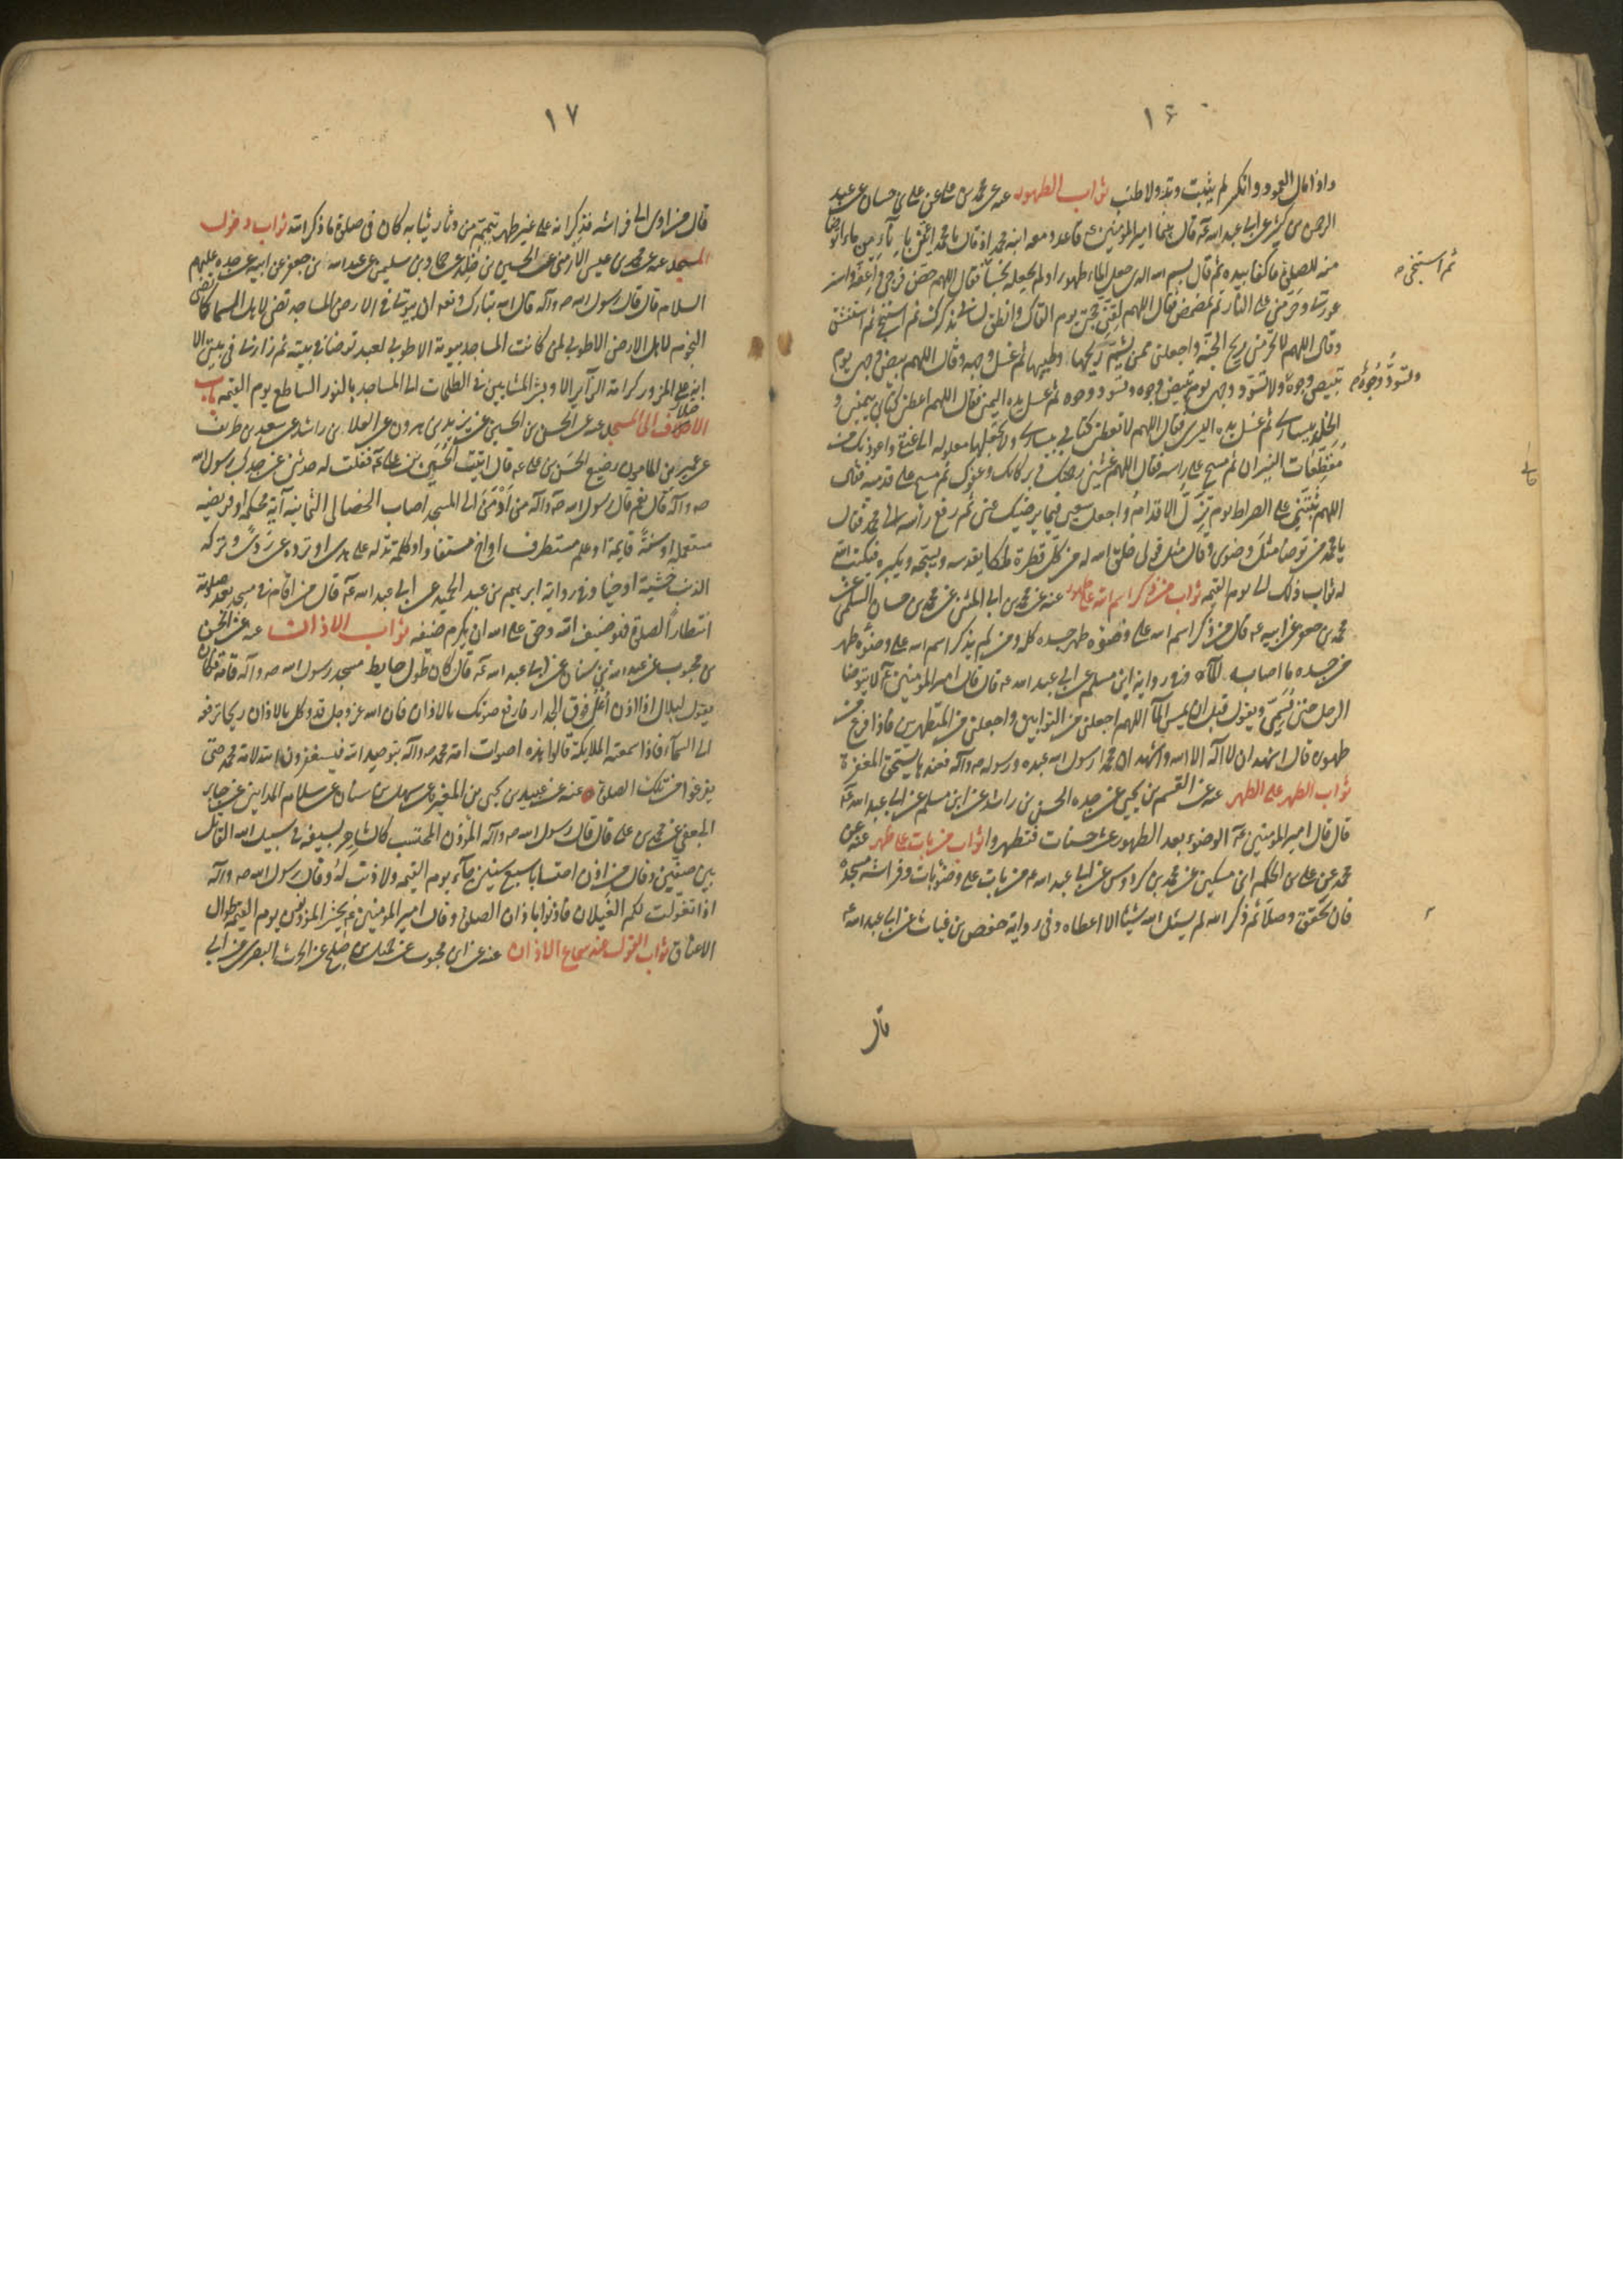 ١٦
واذا مال العمود وانكسر لم يثبت وتد ولا طنب ثواب الطهور عنه عن محمد بن علي عن علي بن حسان عن عبد
الرحمن بن كثير عن ابي عبد الله عه قال بينما امير المؤمنين ع قاعد ومعه ابنه محمد اذ قال يا محمد ايتني باناء من ماء اتوضا
منه للصلوة فاكفا بيده ثم قال بسم الله الذي جعل الماء طهورا ولم يجعله نجسا فقال اللهم حصن فرجي واعفه واستر
ثم استنجى
عورتي وحرمني على النار ثم تمضمض فقال اللهم لقني حجتي يوم القاك وانطق لساني بذكرك ثم استنشق
وقال اللهم لا تحرمني ريح الجنة واجعلني ممن يشم ريحها وطيبها ثم غسل وجهه وقال اللهم بيض وجهي يوم
تبيض وجوه ولا تسود وجهي يوم تبيض وجوه وتسود وجوه ثم غسل يده اليمنى فقال اللهم اعطني كتابي بيميني و
وتسود وجوه
الخلد بيساري ثم غسل يده اليسرى فقال اللهم لا تعطني كتابي بيساري ولا تجعلها مغلولة الى عنقي واعوذ بك من
مقطعات النيران ثم مسح على راسه فقال اللهم غشني رحمتك وبركاتك وعفوك ثم مسح على قدميه فقال
اللهم ثبتني على الصراط يوم تزل الاقدام واجعل سعيي فيما يرضيك عني ثم رفع راسه الى محمد فقال
يا محمد من توضا مثل وضوئي وقال مثل قولي خلق الله له من كل قطرة ملكا يقدسه ويسبحه ويكبره فيكتب الله
له ثواب ذلك الى يوم القيمه ثواب من ذكر اسم الله على طهور عنه عن محمد بن ابي المثنى عن محمد بن حسان السلمي عن
محمد بن جعفر عن ابيه عه قال من ذكر اسم الله على وضوئه طهر جسده كله ومن لم يذكر اسم الله على وضوئه طهر
من جسده ما اصابه الماء وفي رواية ابن مسلم عن ابي عبد الله عه قال قال امير المؤمنين عه لا يتوضا
الرجل حتى يسمي ويقول قبل ان يمس الماء اللهم اجعلني من التوابين واجعلني من المتطهرين فاذا فرغ من
طهوره قال اشهد ان لا اله الا الله واشهد ان محمدا رسول الله عبده ورسوله ص وآله فعندها يستحق المغفرة
ثواب الطهر على الطهر عنه عن القسم بن يحيى عن جده الحسن بن راشد عن ابن مسلم عن ابي عبد الله عه
قال قال امير المؤمنين عه الوضوء بعد الطهور عشر حسنات فتطهروا ثواب من بات على طهر عنه عن
محمد عن علي بن الحكم ابن مسكين عن محمد بن كردوس عن ابي عبد الله عه من بات على وضوء بات وفراشه مسجده
فان تحقق وصلا ثم ذكر الله لم يسئل الله شيئا الا اعطاه وفي رواية حفص بن غياث عن ابي عبد الله عه
قال
١٧
قال من اوى الى فراشه فذكر انه على غير طهر تيمم من دثار ثيابه كان في صلوة ما ذكر الله ثواب دخول
المسجد عنه عن محمد بن عيسى الارمني عن الحسين بن خلد عن حماد بن سليمن عن عبد الله بن جعفر عن ابيه عن جده عليهم
السلام قال قال رسول الله ص وآله قال الله تبارك وتعه ان بيوتي في الارض المساجد تضيء لاهل السما كما تضيء
النجوم لاهل الارض الا طوبى لمن كانت المساجد بيوته الا طوبى لعبد توضا في بيته ثم زارني في بيتي الا
ان على المزور كرامة الزاير الا وبشر المشايين في الظلمات الى المساجد بالنور الساطع يوم القيمه ثواب
الاختلاف الى المسجد عنه عن الحسن بن الحسين عن يزيد بن هرون عن العلاء بن راشد عن سعد بن طريف
عن عمير بن المامون رضيع الحسن بن علي عه قال اتيت الحسين بن علي عه فقلت له حدثني عن جدك رسول الله
ص وآله قال نعم قال رسول الله ص وآله من ادمن الى المسجد اصاب الخصال الثمانية آية محكمة او فريضه
مستعملة او سنة قايمة او علم مستطرف او اخ مستفاد او كلمة تدله على هدى او ترده عن ردى وتركه
الذنب خشية او حيا وفي رواية ابرهيم بن عبد الحميد عن ابي عبد الله عه قال من اقام في مسجد بعد صلوته
انتظارا للصلوة فهو ضيف الله وحق على الله ان يكرم ضيفه ثواب الاذان عنه عن الحسن
بن محبوب عن عبد الله بن سنان عن ابي عبد الله عه قال كان طول حايط مسجد رسول الله ص وآله قامة فكان
يقول لبلال اذا اذن اعل فوق الجدار فارفع صوتك بالاذان فان الله عز وجل قد وكل بالاذان ريحا ترفعه
الى السمآء فاذا سمعته الملايكة قالوا هذه اصوات امة محمد ص وآله بتوحيد الله فيستغفرون الله لامة محمد حتى
يفرغوا من تلك الصلوة عنه عن عبيد بن يحيى بن المغيرة عن سهل بن سنان عن سلام المدايني عن جابر
الجعفي عن محمد بن علي قال قال رسول الله ص وآله المؤذن المحتسب كالشاهر بسيفه في سبيل الله القاتل
بين صفين وقال من اذن احتسابا سبع سنين جآء يوم القيمه ولا ذنب له وقال رسول الله ص وآله
اذا تغولت لكم الغيلان فاذنوا باذان الصلوة وقال امير المؤمنين عه يحشر المؤذنون يوم القيمه طوال
الاعناق ثواب القول عند سماع الاذان عنه عن ابن محبوب عن جميل بن صالح عن الحرث البصري عن ابي